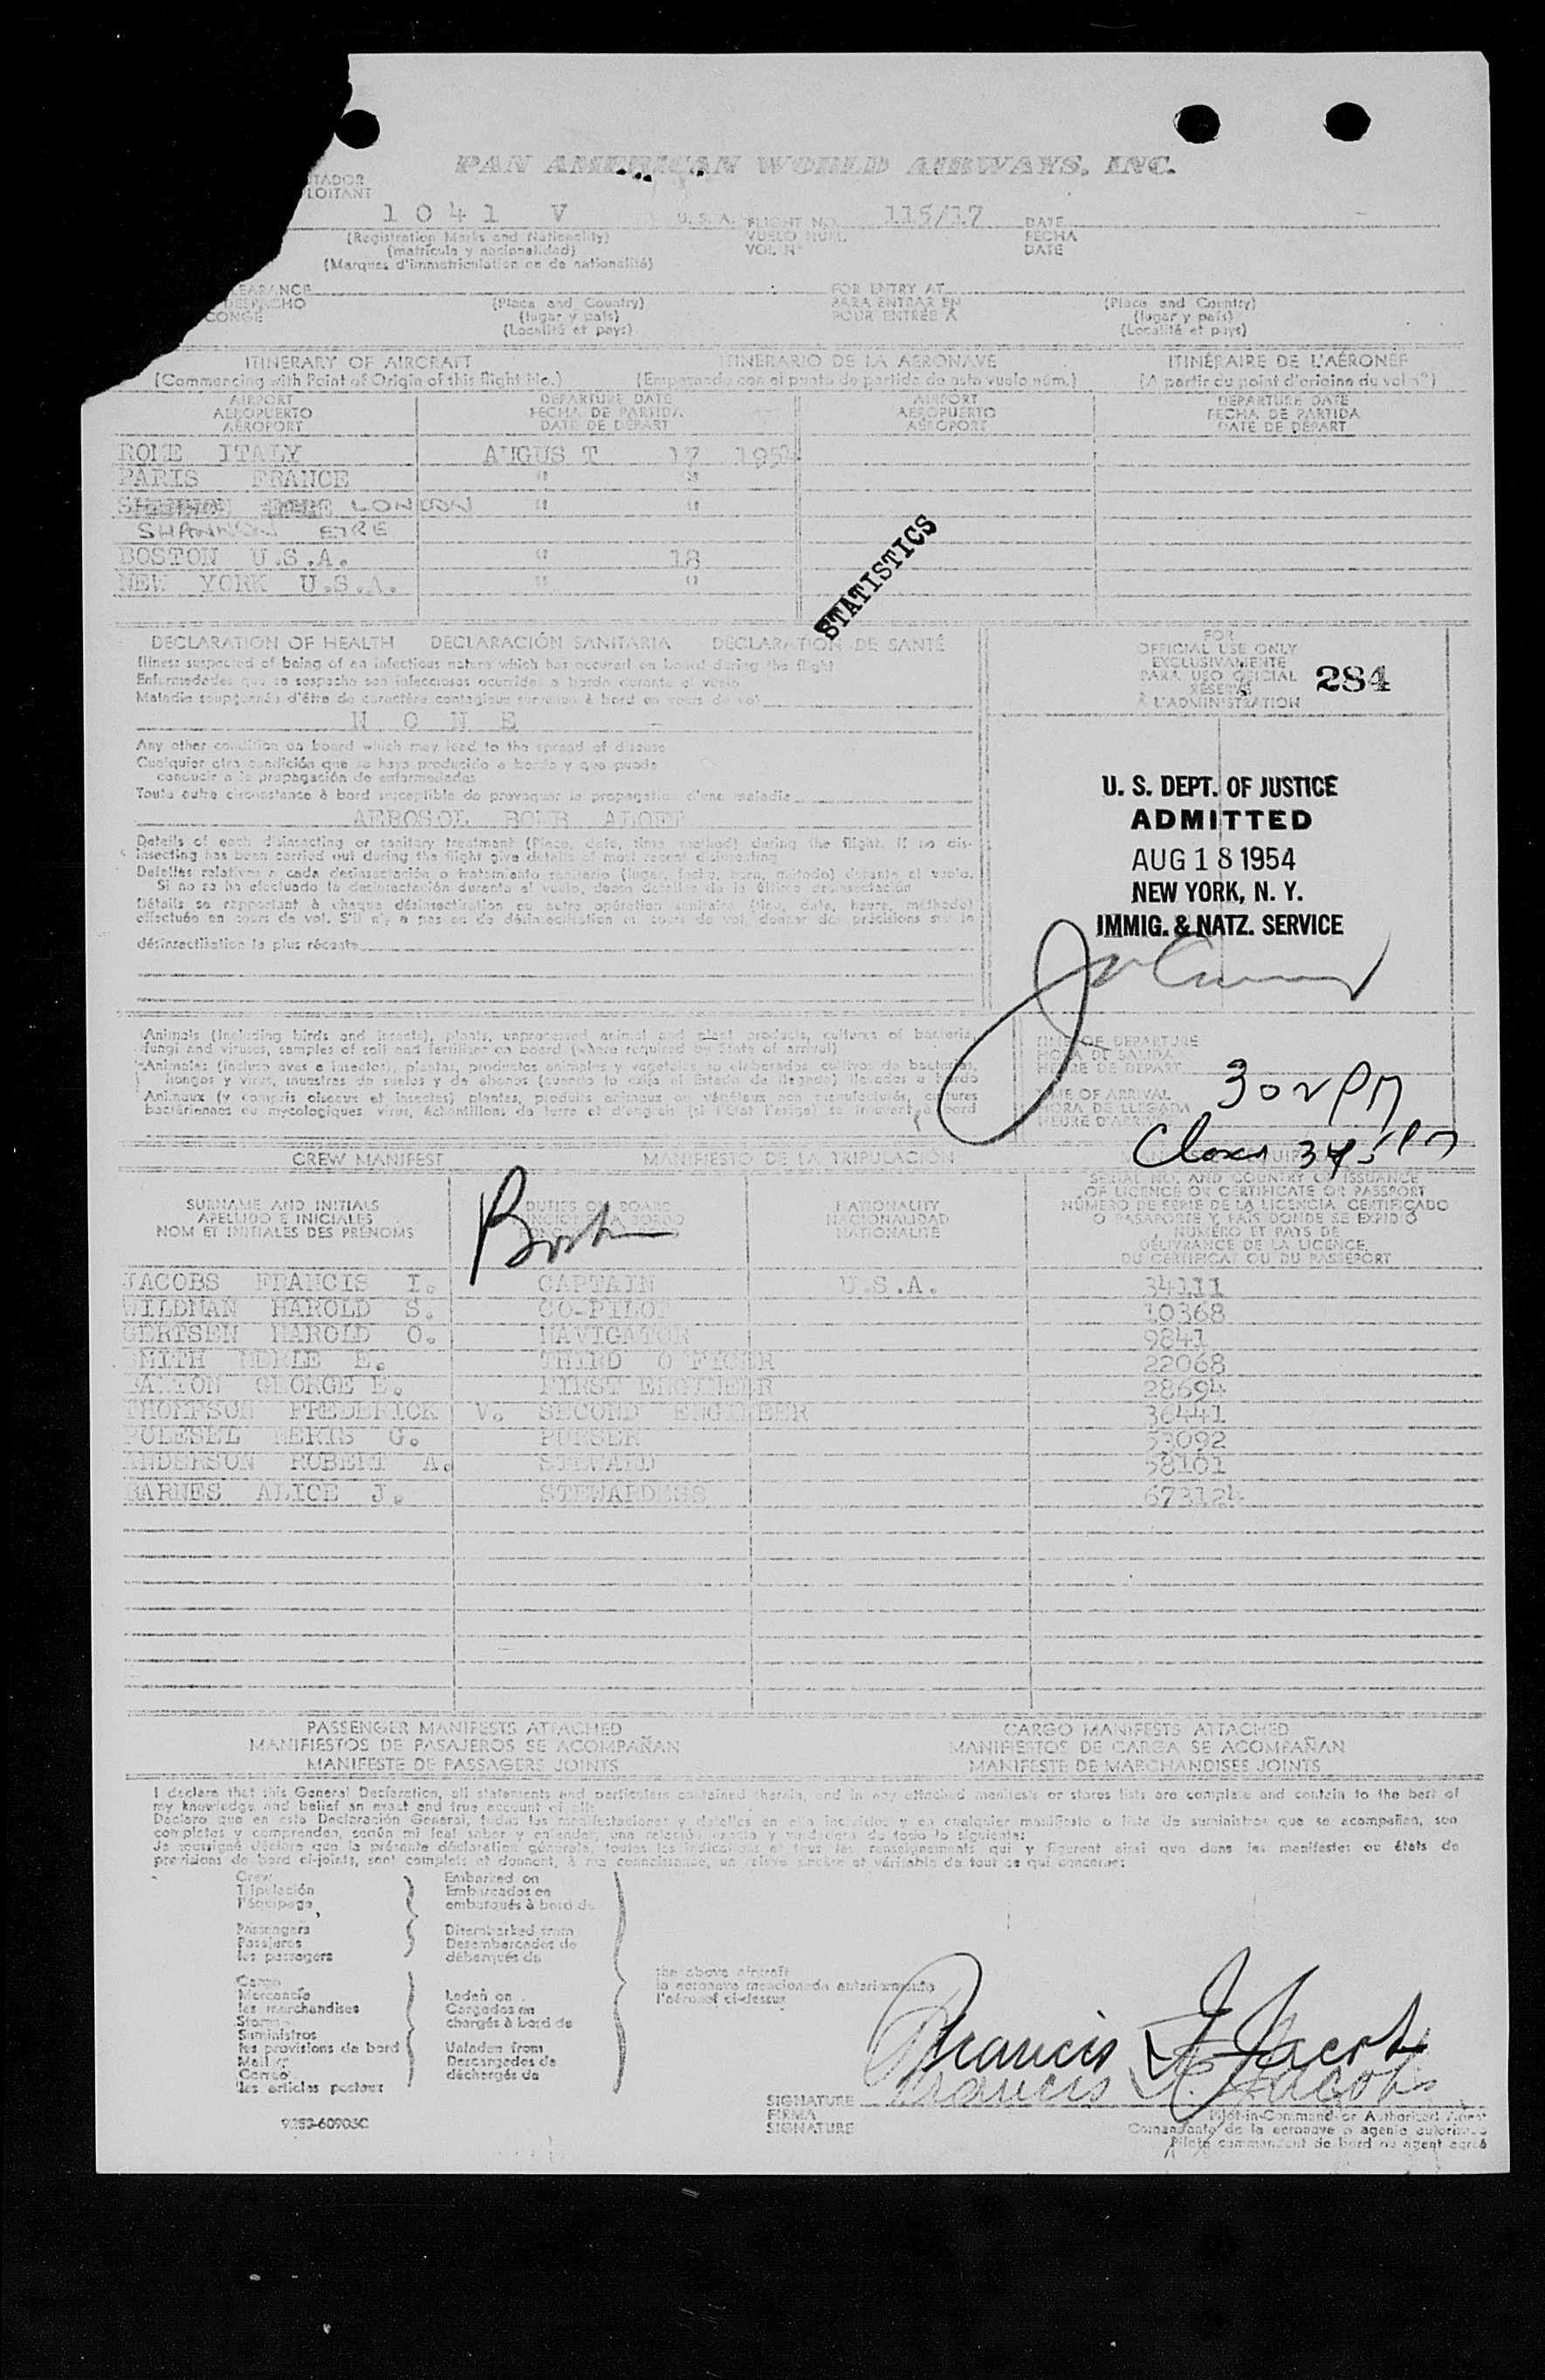 PAN AMERICAN WORLD AIRWAYS, INC.
TADOR
LOITANT
1041 V U.S.A. FLIGHT NO. 115/17 DATE
VUELO NUM. FECHA
VOL N° DATE
(Registration Marks and Nationality)
(matrícula y nacionalidad)
(Marques d'immatriculation et de nationalité)
EARANCE (Place and Country) FOR ENTRY AT (Place and Country)
DESPACHO (lugar y país) PARA ENTRAR EN (lugar y país)
CONGÉ (Localité et pays) POUR ENTRÉE A (Localité et pays)
ITINERARY OF AIRCRAFT ITINERARIO DE LA AERONAVE ITINÉRAIRE DE L'AÉRONEF
(Commencing with Point of Origin of this flight No.) (Empezando con el punto de partida de este vuelo núm.) (A partir du point d'origine du vol n°)
AIRPORT DEPARTURE DATE AIRPORT DEPARTURE DATE
AEROPUERTO FECHA DE PARTIDA AEROPUERTO FECHA DE PARTIDA
AÉROPORT DATE DE DÉPART AÉROPORT DATE DE DÉPART
ROME ITALY AUGUS T 17 1954
PARIS FRANCE " "
LONDON " "
SHANNON EIRE
BOSTON U.S.A. " 18
NEW YORK U.S.A. " "
STATISTICS
DECLARATION OF HEALTH DECLARACIÓN SANITARIA DÉCLARATION DE SANTÉ
Illness suspected of being of an infectious nature which has occured on board during the flight
Enfermedades que se sospecha son infecciosas ocurridas a bordo durante el vuelo
Maladie soupçonnés d'être de caractère contagieux survenue à bord en cours de vol
N O N E
Any other condition on board which may lead to the spread of disease
Cualquier otra condición que se haya producido a bordo y que puede
conducir a la propagación de enfermedades
Toute autre circonstance à bord susceptible de provoquer la propagation d'une maladie
AEROSOL BOMB ALOFT
Details of each disinsecting or sanitary treatment (Place, date, time, method) during the flight. If no dis-
insecting has been carried out during the flight give details of most recent disinsecting
Detalles relativos a cada desinsectación o tratamiento sanitario (lugar, fecha, hora, método) durante el vuelo.
Si no se ha efectuado la desinsectación durante el vuelo, dense detalles de la última desinsectación
Détails se rapportant à chaque désinsectisation ou autre opération sanitaire (lieu, date, heure, méthode)
effectuée en cours de vol. S'il n'y a pas eu de désinsectisation en cours de vol donner des précisions sur la
désinsectisation la plus récente
FOR
OFFICIAL USE ONLY
EXCLUSIVAMENTE
PARA USO OFICIAL
RÉSERVÉ
À L'ADMINISTRATION
284
U. S. DEPT. OF JUSTICE
ADMITTED
AUG 18 1954
NEW YORK, N. Y.
IMMIG. & NATZ. SERVICE
Animals (including birds and insects), plants, unprocessed animal and plant products, cultures of bacteria,
fungi and viruses, samples of soil and fertiliser on board (where required by State of arrival)
Animales (incluso aves e insectos), plantas, productos animales y vegetales no elaborados, cultivos de bacterias,
hongos y virus, muestras de suelos y de abonos (cuando lo exija el Estado de llegada) llevados a bordo
Animaux (y compris oiseaux et insectes) plantes, produits animaux ou végétaux non manufacturés, cultures
bactériennes ou mycologiques virus, échantillons de terre et d'engrais (si l'État l'exige) se trouvant à bord
TIME OF DEPARTURE
HORA DE SALIDA
HEURE DE DÉPART
TIME OF ARRIVAL
HORA DE LLEGADA
HEURE D'ARRIVÉE
302 PM
345 PM
CREW MANIFEST MANIFIESTO DE LA TRIPULACIÓN
SURNAME AND INITIALS DUTIES ON BOARD NATIONALITY SERIAL NO. AND COUNTRY OF ISSUANCE
APELLIDO E INICIALES NACIONALIDAD OF LICENCE OR CERTIFICATE OR PASSPORT
NOM ET INITIALES DES PRENOMS NATIONALITÉ NÚMERO DE SERIE DE LA LICENCIA, CERTIFICADO
O PASAPORTE Y PAÍS DONDE SE EXPIDIÓ
NUMÉRO ET PAYS DE
DÉLIVRANCE DE LA LICENCE,
DU CERTIFICAT OU DU PASSEPORT
JACOBS FRANCIS I. CAPTAIN U.S.A. 34111
WILDMAN HAROLD S. CO-PILOT 10368
GERTSEN HAROLD O. NAVIGATOR 9841
SMITH MERLE E. THIRD OFFICER 22068
GEORGE E. FIRST ENGINEER 28694
THOMPSON FREDERICK V. SECOND ENGINEER 36441
POLESEL NERIS G. PURSER 53092
ANDERSON ROBERT A. STEWARD 58101
BARNES ALICE J. STEWARDESS 673124
PASSENGER MANIFESTS ATTACHED CARGO MANIFESTS ATTACHED
MANIFIESTOS DE PASAJEROS SE ACOMPAÑAN MANIFIESTOS DE CARGA SE ACOMPAÑAN
MANIFESTE DE PASSAGERS JOINTS MANIFESTE DE MARCHANDISES JOINTS
I declare that this General Declaration, all statements and particulars contained therein, and in any attached manifests or stores lists are complete and contain to the best of
my knowledge and belief an exact and true account of all:
Declaro que en esta Declaración General, todas las manifestaciones y detalles en ella incluidos y en cualquier manifiesto o lista de suministros que se acompañan, son
completos y comprenden, según mi leal saber y entender, una relación exacta y verdadera de todo lo siguiente:
Je soussigné déclare que la présente déclaration générale, toutes les indications et tous les renseignements qui y figurent ainsi que dans les manifestes ou états de
provisions de bord ci-joints, sont complets et donnent, à ma connaissance, un relevé sincère et véritable de tout ce qui concerne:
Crew Embarked on
Tripulación Embarcados en
l'équipage embarqués à bord de
Passengers Disembarked from
Pasajeros Desembarcados de
les passagers débarqués de
the above aircraft
la aeronave mencionada anteriormente
l'aéronef ci-dessus
Cargo
Mercancía Laden on
les marchandises Cargados en
Stores chargés à bord de
Suministros
les provisions de bord Unladen from
Mail Descargados de
Correo déchargés de
les articles postaux
Francis I. Jacobs
Francis I. Jacobs
SIGNATURE
FIRMA
SIGNATURE
Pilot-in-Command or Authorized Agent
Comandante de la aeronave o agente autorizado
Pilote commandant de bord ou agent agréé
9259-60903C